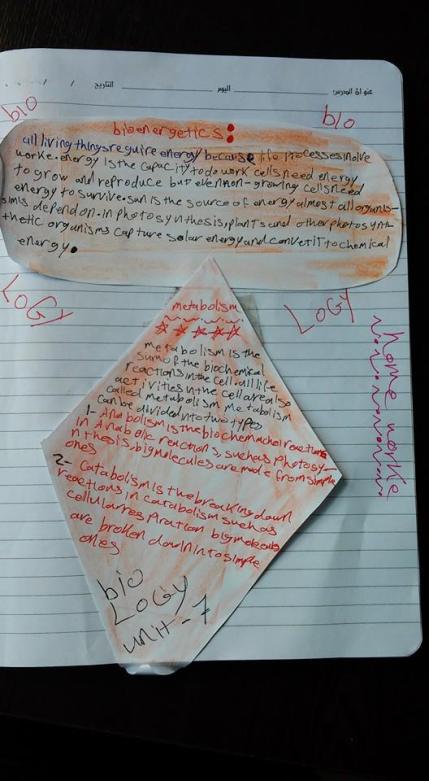 عنوان الدرس
اليوم
التاريخ
bio
bio
bioenergetics:
all living things reguire energy because life processes inolve
worke. energy is the capacity to do work cells need energy
to grow and reproduce but even non-growing cells need
energy to survive. sun is the source of energy almost all organis-
sms depend on. in photosynthesis, plants and other photosynt-
thetic organisms capture solar energy and convert it to chemical
energy.
LOGY
LOGY
metabolism
metabolism is the
sum of the biochemical
reactions in the cell. all life
activities in the cell are also
called metabolism metabolism
can be divided into two types
1- Anabolism is the biochemackel reactions
in Anabolic reactions, such as photosy-
nthesis, big molecules are made from simple
ones
2- Catabolism is the breaking down
reactions in catabolism such as
cellular respiration big molecules
are broken down into simple
ones
bio
LOGY
unit-1
home worke